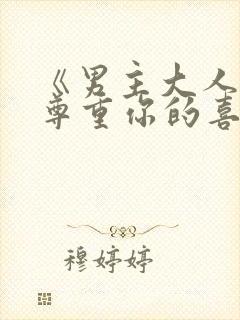 《男主大人
尊重你的喜
穆婷婷